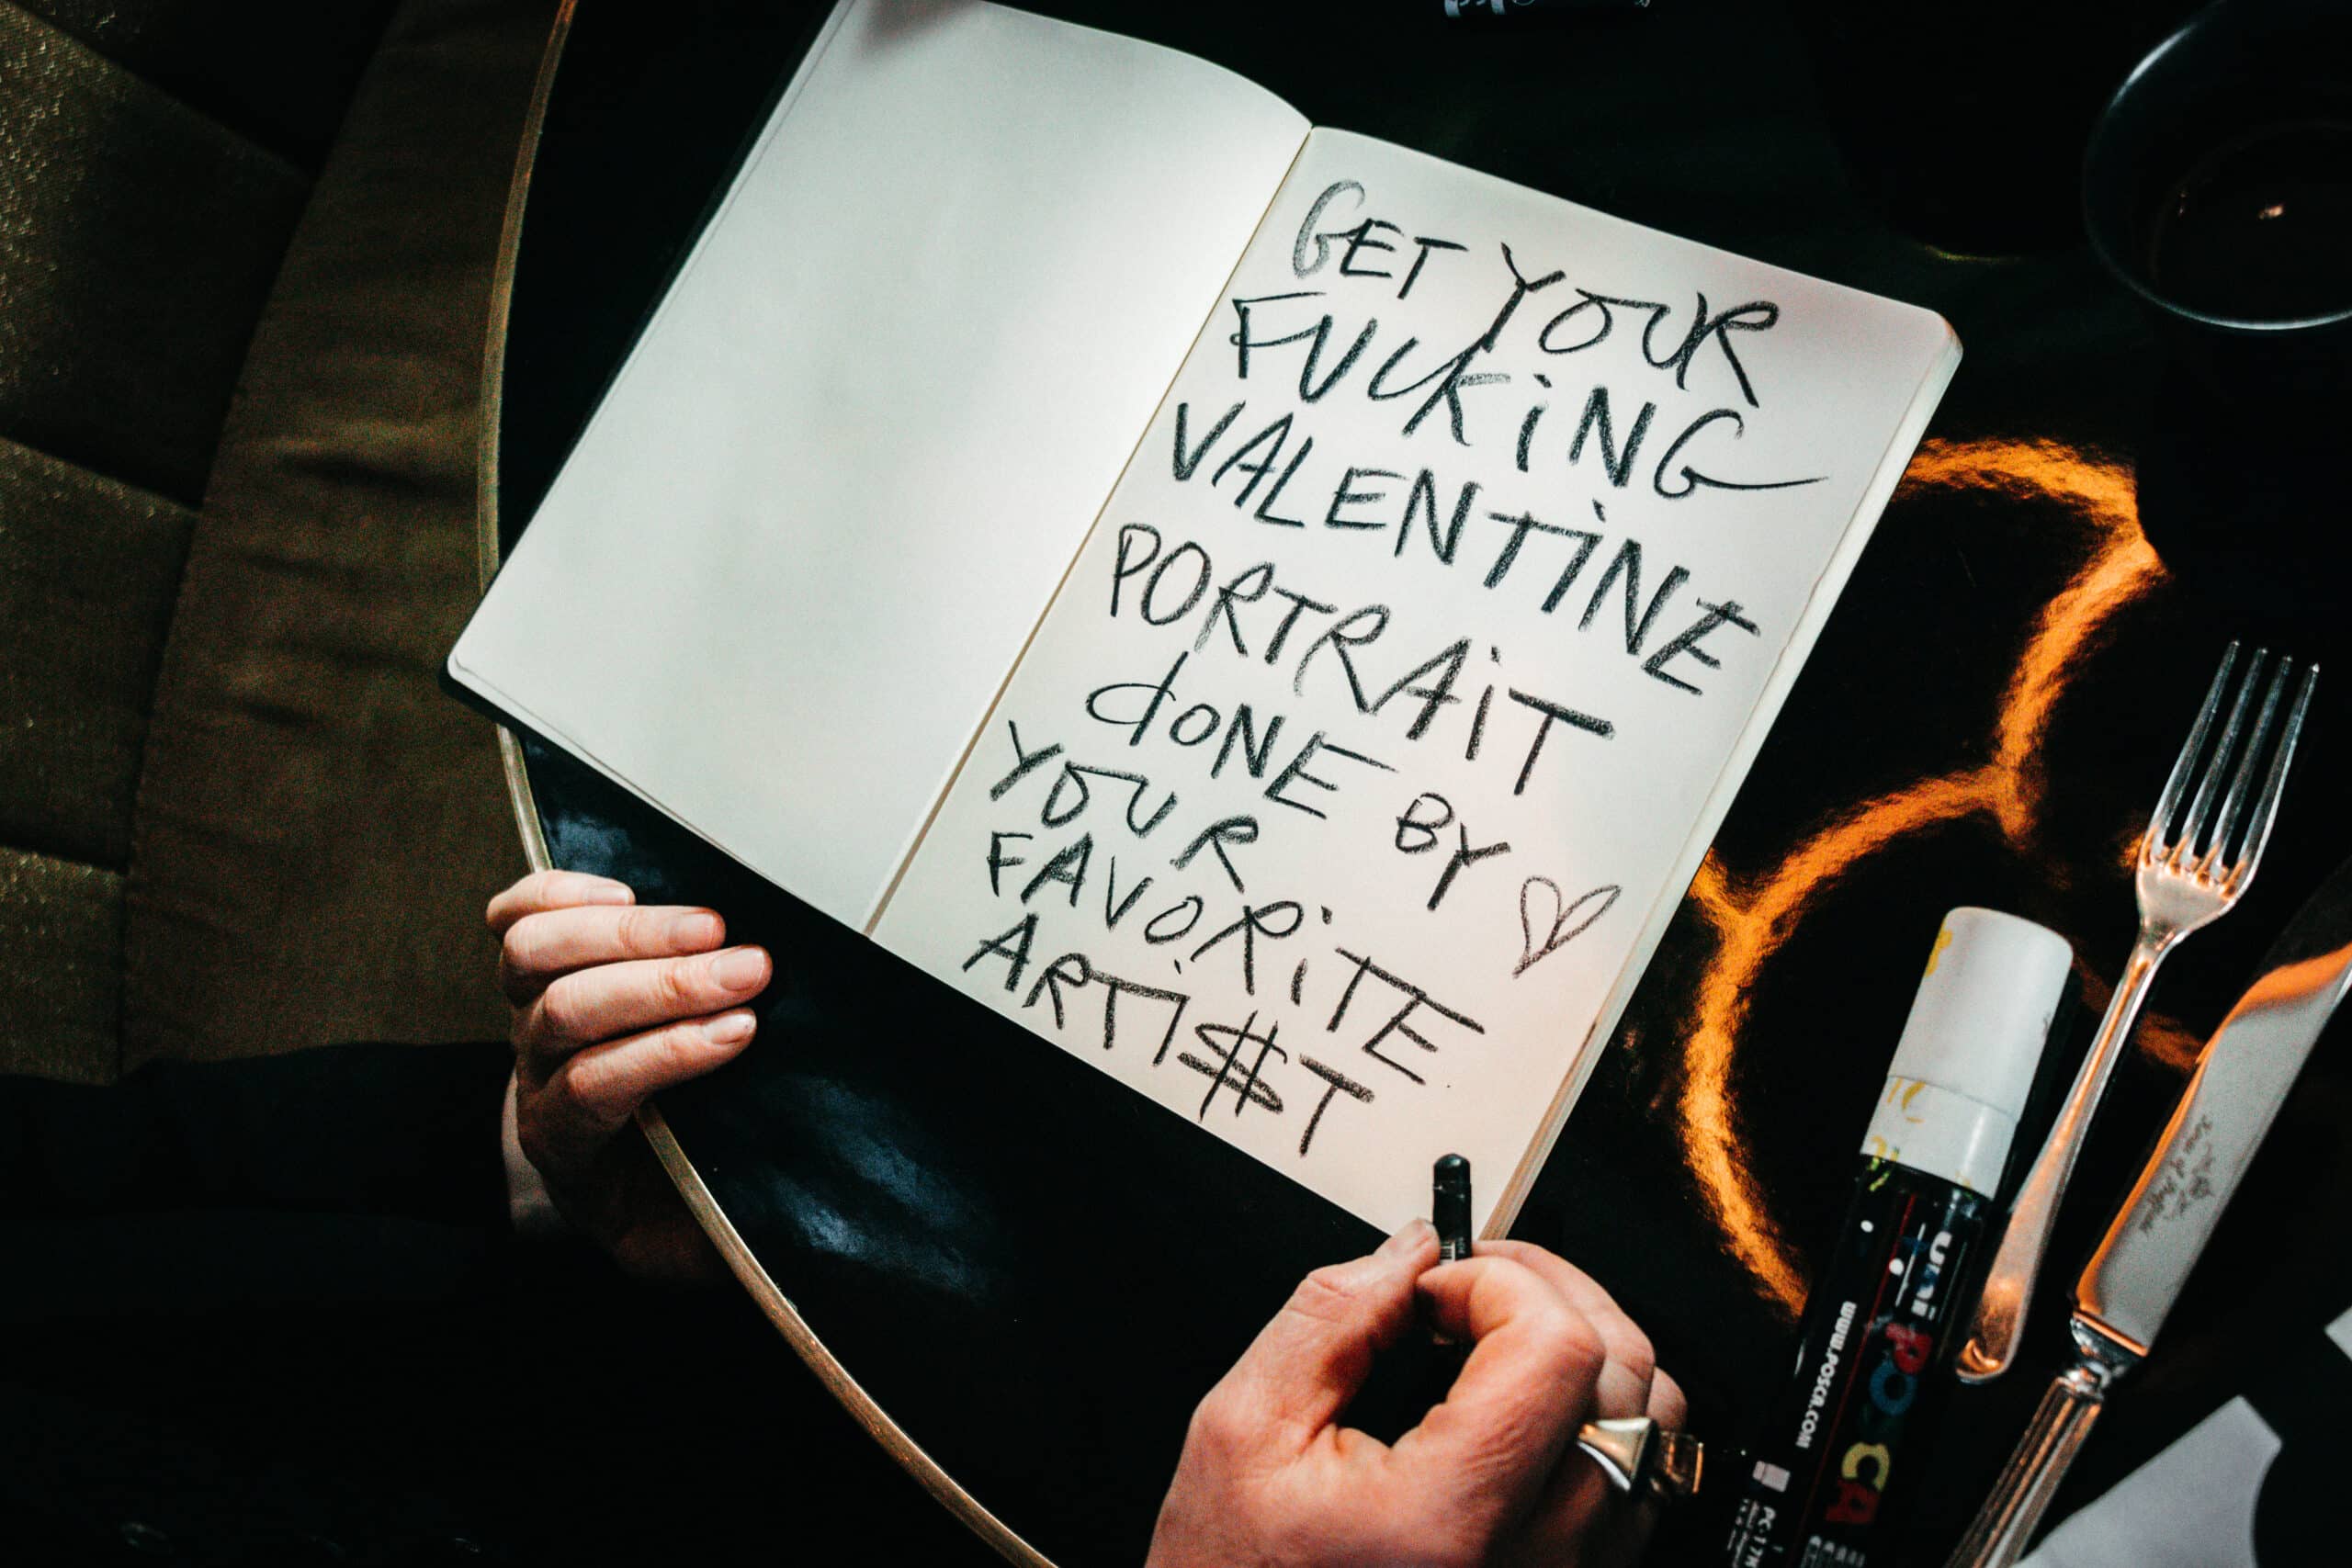 GET YOUR
FUCKiNG
VALENTiNE
PORTRAiT
dONE BY
YOUR
FAVORiTE
ARTi$T
uni POSCA
www.POSCA.COM
PC-17K